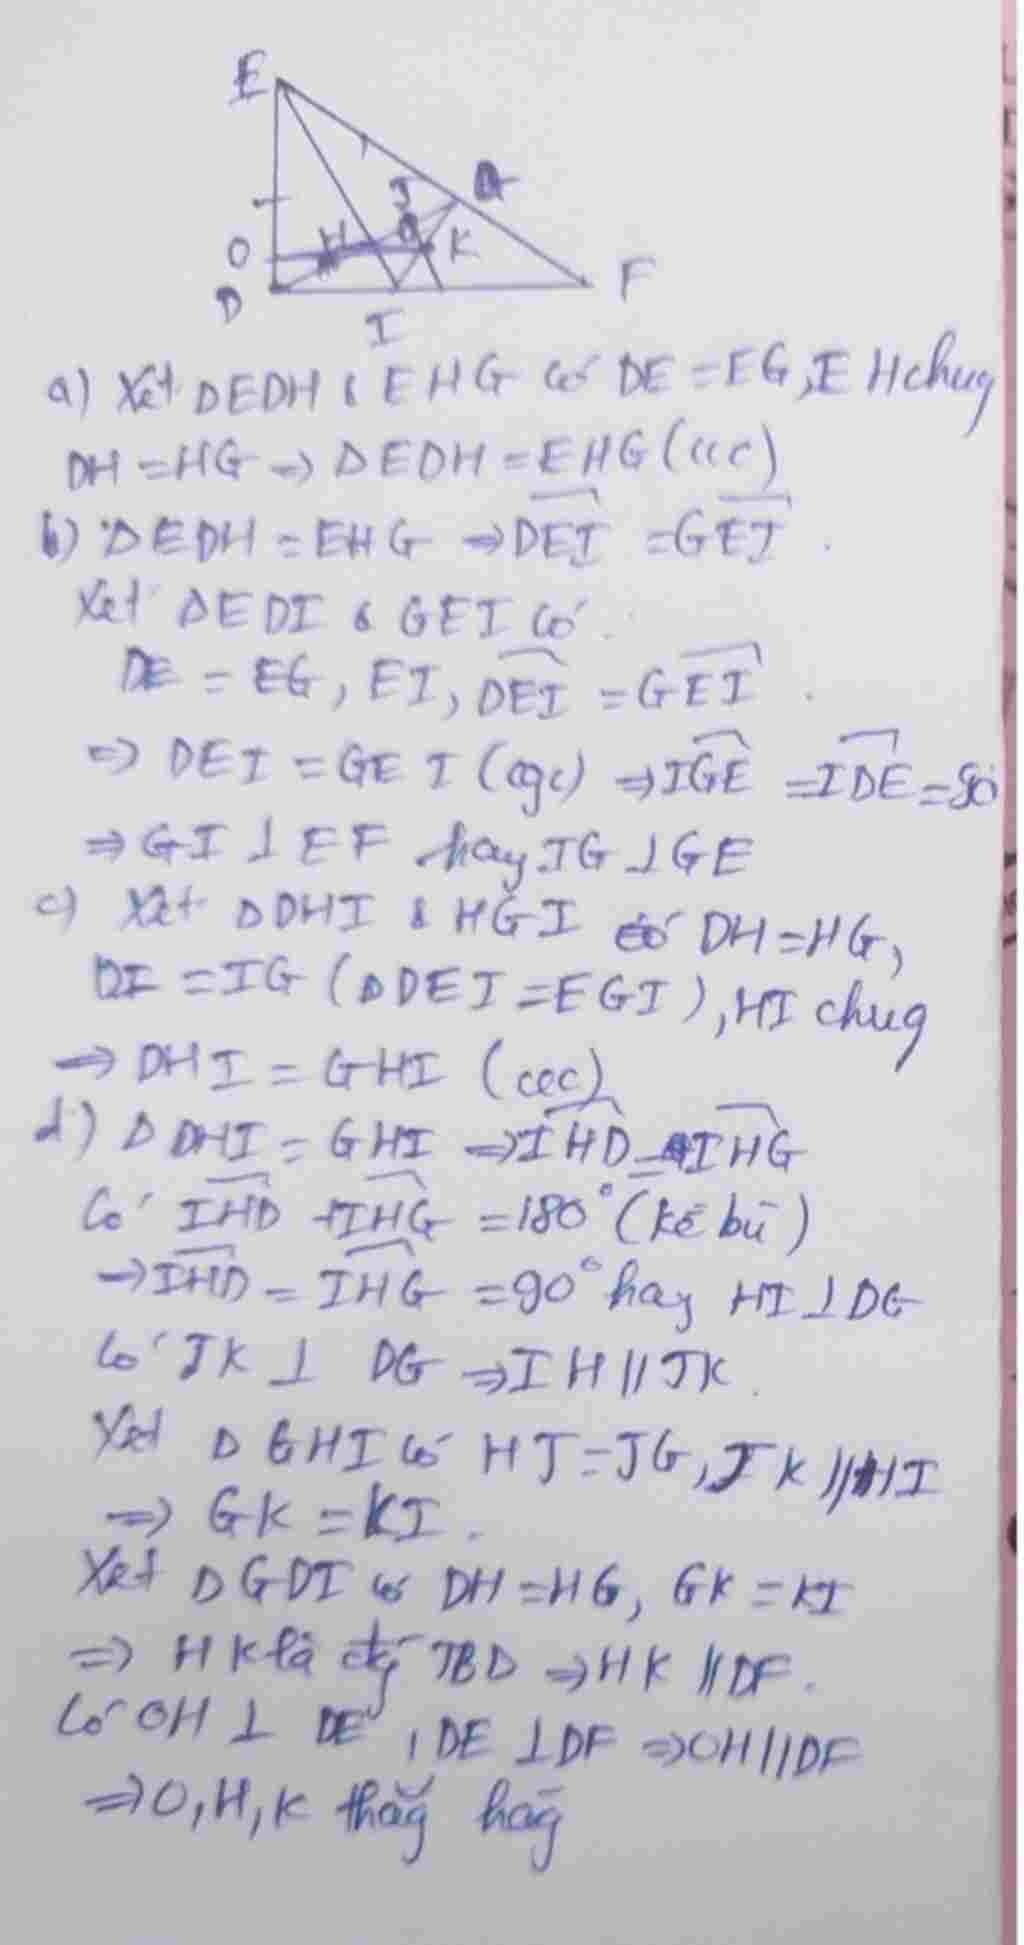 E
J
G
O
H
K
D
I
F
a) Xét ΔEDH & EHG có DE = EG, EH chug
DH = HG => ΔEDH = EHG (ccc)
b) ΔEDH = EHG => DEI = GEI
Xét ΔEDI & GEI có
DE = EG, EI, DEI = GEI
=> DEI = GEI (cgc) => IGE = IDE = 90
=> GI ⊥ EF hay IG ⊥ GE
c) Xét ΔDHI & HGI có DH = HG,
DI = IG (ΔDEI = EGI), HI chug
=> DHI = GHI (ccc)
d) ΔDHI = GHI => IHD = IHG
Có IHD + IHG = 180° (kề bù)
=> IHD = IHG = 90° hay HI ⊥ DG
Có JK ⊥ DG => IH // JK
Xét ΔGHI có HJ = JG, JK // HI
=> GK = KI.
Xét ΔGDI có DH = HG, GK = KI
=> HK là TBD => HK // DF.
Có OH ⊥ DE, DE ⊥ DF => OH // DF
=> O, H, K thẳg hàg